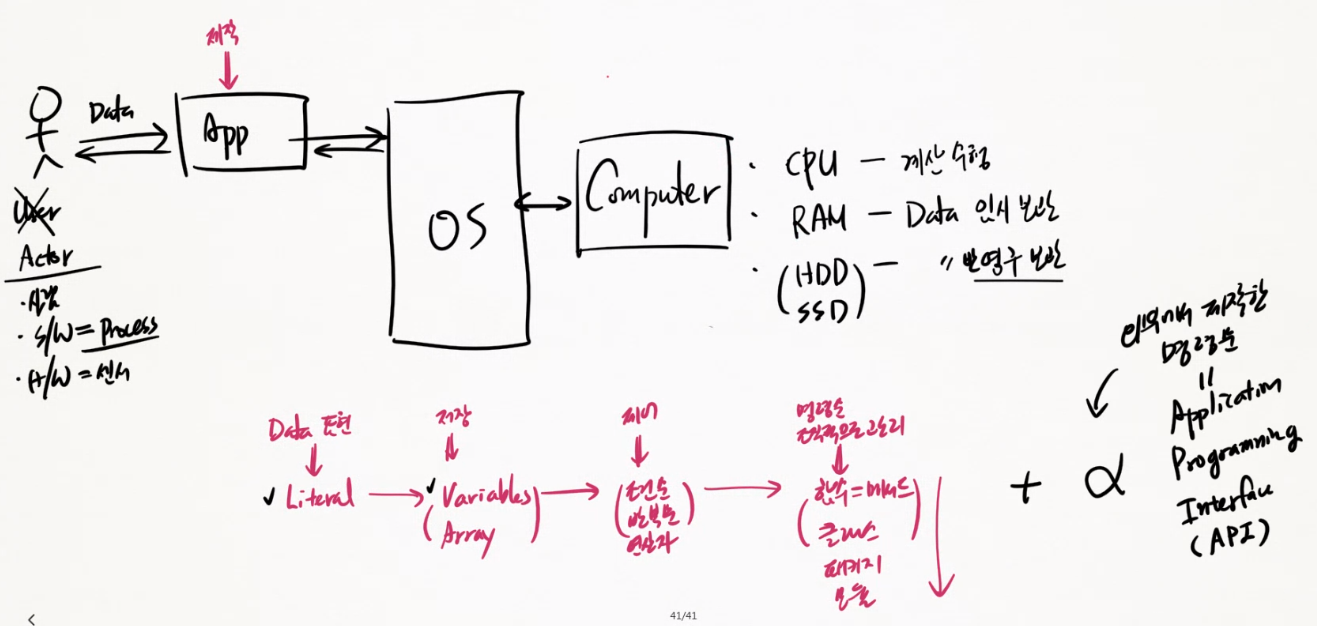 제작
Data
App
OS
Computer
· CPU — 계산 수행
· RAM — Data 임시 보관
· (HDD SSD) — 〃 반영구 보관
User
Actor
· 사람
· S/W = Process
· H/W = 센서
Data 표현
✓ Literal
저장
✓ Variables
Array
제어
조건문
반복문
연산자
명령문
조직적으로 관리
함수 = 메서드
클래스
패키지
모듈
+ α
제작한
명령문
=
Application
Programming
Interface
(API)
<
41/41